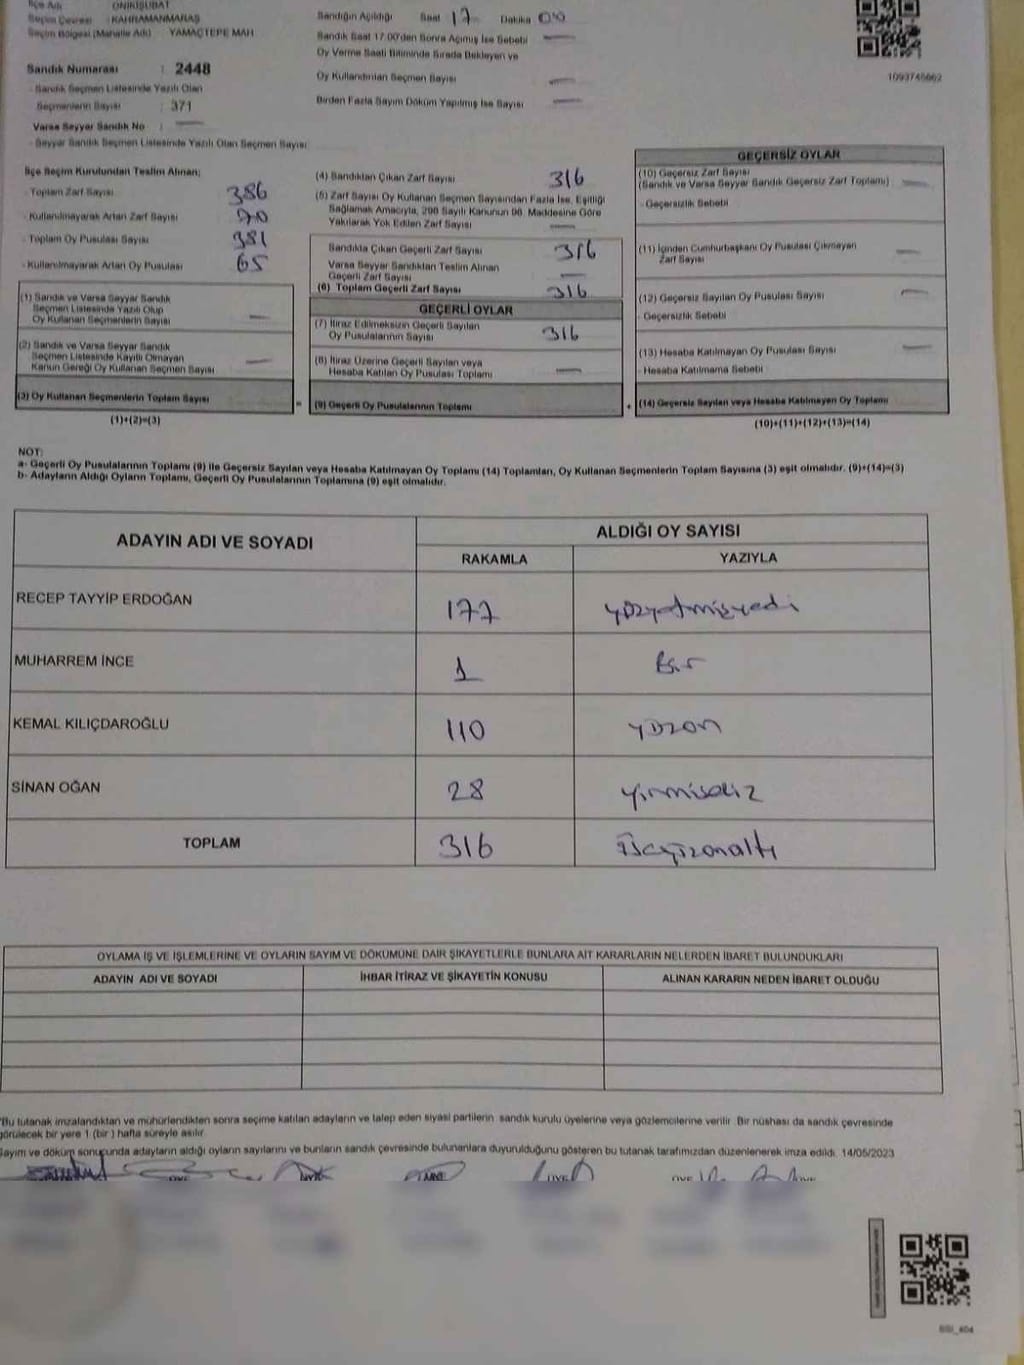 İlçe Adı ONİKİŞUBAT
Seçim Çevresi : KAHRAMANMARAŞ
Seçim Bölgesi (Mahalle Adı) YAMAÇTEPE MAH
Sandık Numarası : 2448
- Sandık Seçmen Listesinde Yazılı Olan
Seçmenlerin Sayısı : 371
Varsa Seyyar Sandık No :
- Seyyar Sandık Seçmen Listesinde Yazılı Olan Seçmen Sayısı
Sandığın Açıldığı Saat 17 Dakika 00
Sandık Saat 17:00'den Sonra Açılmış İse Sebebi
Oy Verme Saati Bitiminde Sırada Bekleyen ve
Oy Kullandırılan Seçmen Sayısı
Birden Fazla Sayım Döküm Yapılmış İse Sayısı
1093745662
İlçe Seçim Kurulundan Teslim Alınan;
- Toplam Zarf Sayısı 386
- Kullanılmayarak Artan Zarf Sayısı 70
- Toplam Oy Pusulası Sayısı 381
- Kullanılmayarak Artan Oy Pusulası 65
(1) Sandık ve Varsa Seyyar Sandık
Seçmen Listesinde Yazılı Olup
Oy Kullanan Seçmenlerin Sayısı
(2) Sandık ve Varsa Seyyar Sandık
Seçmen Listesinde Kayıtlı Olmayan
Kanun Gereği Oy Kullanan Seçmen Sayısı
(3) Oy Kullanan Seçmenlerin Toplam Sayısı
(1)+(2)=(3)
(4) Sandıktan Çıkan Zarf Sayısı 316
(5) Zarf Sayısı Oy Kullanan Seçmen Sayısından Fazla İse, Eşitliği
Sağlamak Amacıyla, 298 Sayılı Kanunun 98. Maddesine Göre
Yakılarak Yok Edilen Zarf Sayısı
Sandıkta Çıkan Geçerli Zarf Sayısı 316
Varsa Seyyar Sandıktan Teslim Alınan
Geçerli Zarf Sayısı
(6) Toplam Geçerli Zarf Sayısı 316
GEÇERLİ OYLAR
(7) İtiraz Edilmeksizin Geçerli Sayılan
Oy Pusulalarının Sayısı 316
(8) İtiraz Üzerine Geçerli Sayılan veya
Hesaba Katılan Oy Pusulası Toplamı
= (9) Geçerli Oy Pusulalarının Toplamı
GEÇERSİZ OYLAR
(10) Geçersiz Zarf Sayısı
(Sandık ve Varsa Seyyar Sandık Geçersiz Zarf Toplamı)
- Geçersizlik Sebebi
(11) İçinden Cumhurbaşkanı Oy Pusulası Çıkmayan
Zarf Sayısı
(12) Geçersiz Sayılan Oy Pusulası Sayısı
- Geçersizlik Sebebi
(13) Hesaba Katılmayan Oy Pusulası Sayısı
- Hesaba Katılmama Sebebi
+ (14) Geçersiz Sayılan veya Hesaba Katılmayan Oy Toplamı
(10)+(11)+(12)+(13)=(14)
NOT:
a- Geçerli Oy Pusulalarının Toplamı (9) ile Geçersiz Sayılan veya Hesaba Katılmayan Oy Toplamı (14) Toplamları, Oy Kullanan Seçmenlerin Toplam Sayısına (3) eşit olmalıdır. (9)+(14)=(3)
b- Adayların Aldığı Oyların Toplamı, Geçerli Oy Pusulalarının Toplamına (9) eşit olmalıdır.
ADAYIN ADI VE SOYADI ALDIĞI OY SAYISI
RAKAMLA YAZIYLA
RECEP TAYYİP ERDOĞAN 177 yüzyetmişyedi
MUHARREM İNCE 1 Bir
KEMAL KILIÇDAROĞLU 110 yüzon
SİNAN OĞAN 28 yirmisekiz
TOPLAM 316 üçyüzonaltı
OYLAMA İŞ VE İŞLEMLERİNE VE OYLARIN SAYIM VE DÖKÜMÜNE DAİR ŞİKAYETLERLE BUNLARA AİT KARARLARIN NELERDEN İBARET BULUNDUKLARI
ADAYIN ADI VE SOYADI İHBAR İTİRAZ VE ŞİKAYETİN KONUSU ALINAN KARARIN NEDEN İBARET OLDUĞU
*Bu tutanak imzalandıktan ve mühürlendikten sonra seçime katılan adayların ve talep eden siyasi partilerin sandık kurulu üyelerine veya gözlemcilerine verilir. Bir nüshası da sandık çevresinde
görülecek bir yere 1 (bir) hafta süreyle asılır.
Sayım ve döküm sonucunda adayların aldığı oyların sayılarını ve bunların sandık çevresinde bulunanlara duyurulduğunu gösteren bu tutanak tarafımızdan düzenlenerek imza edildi. 14/05/2023